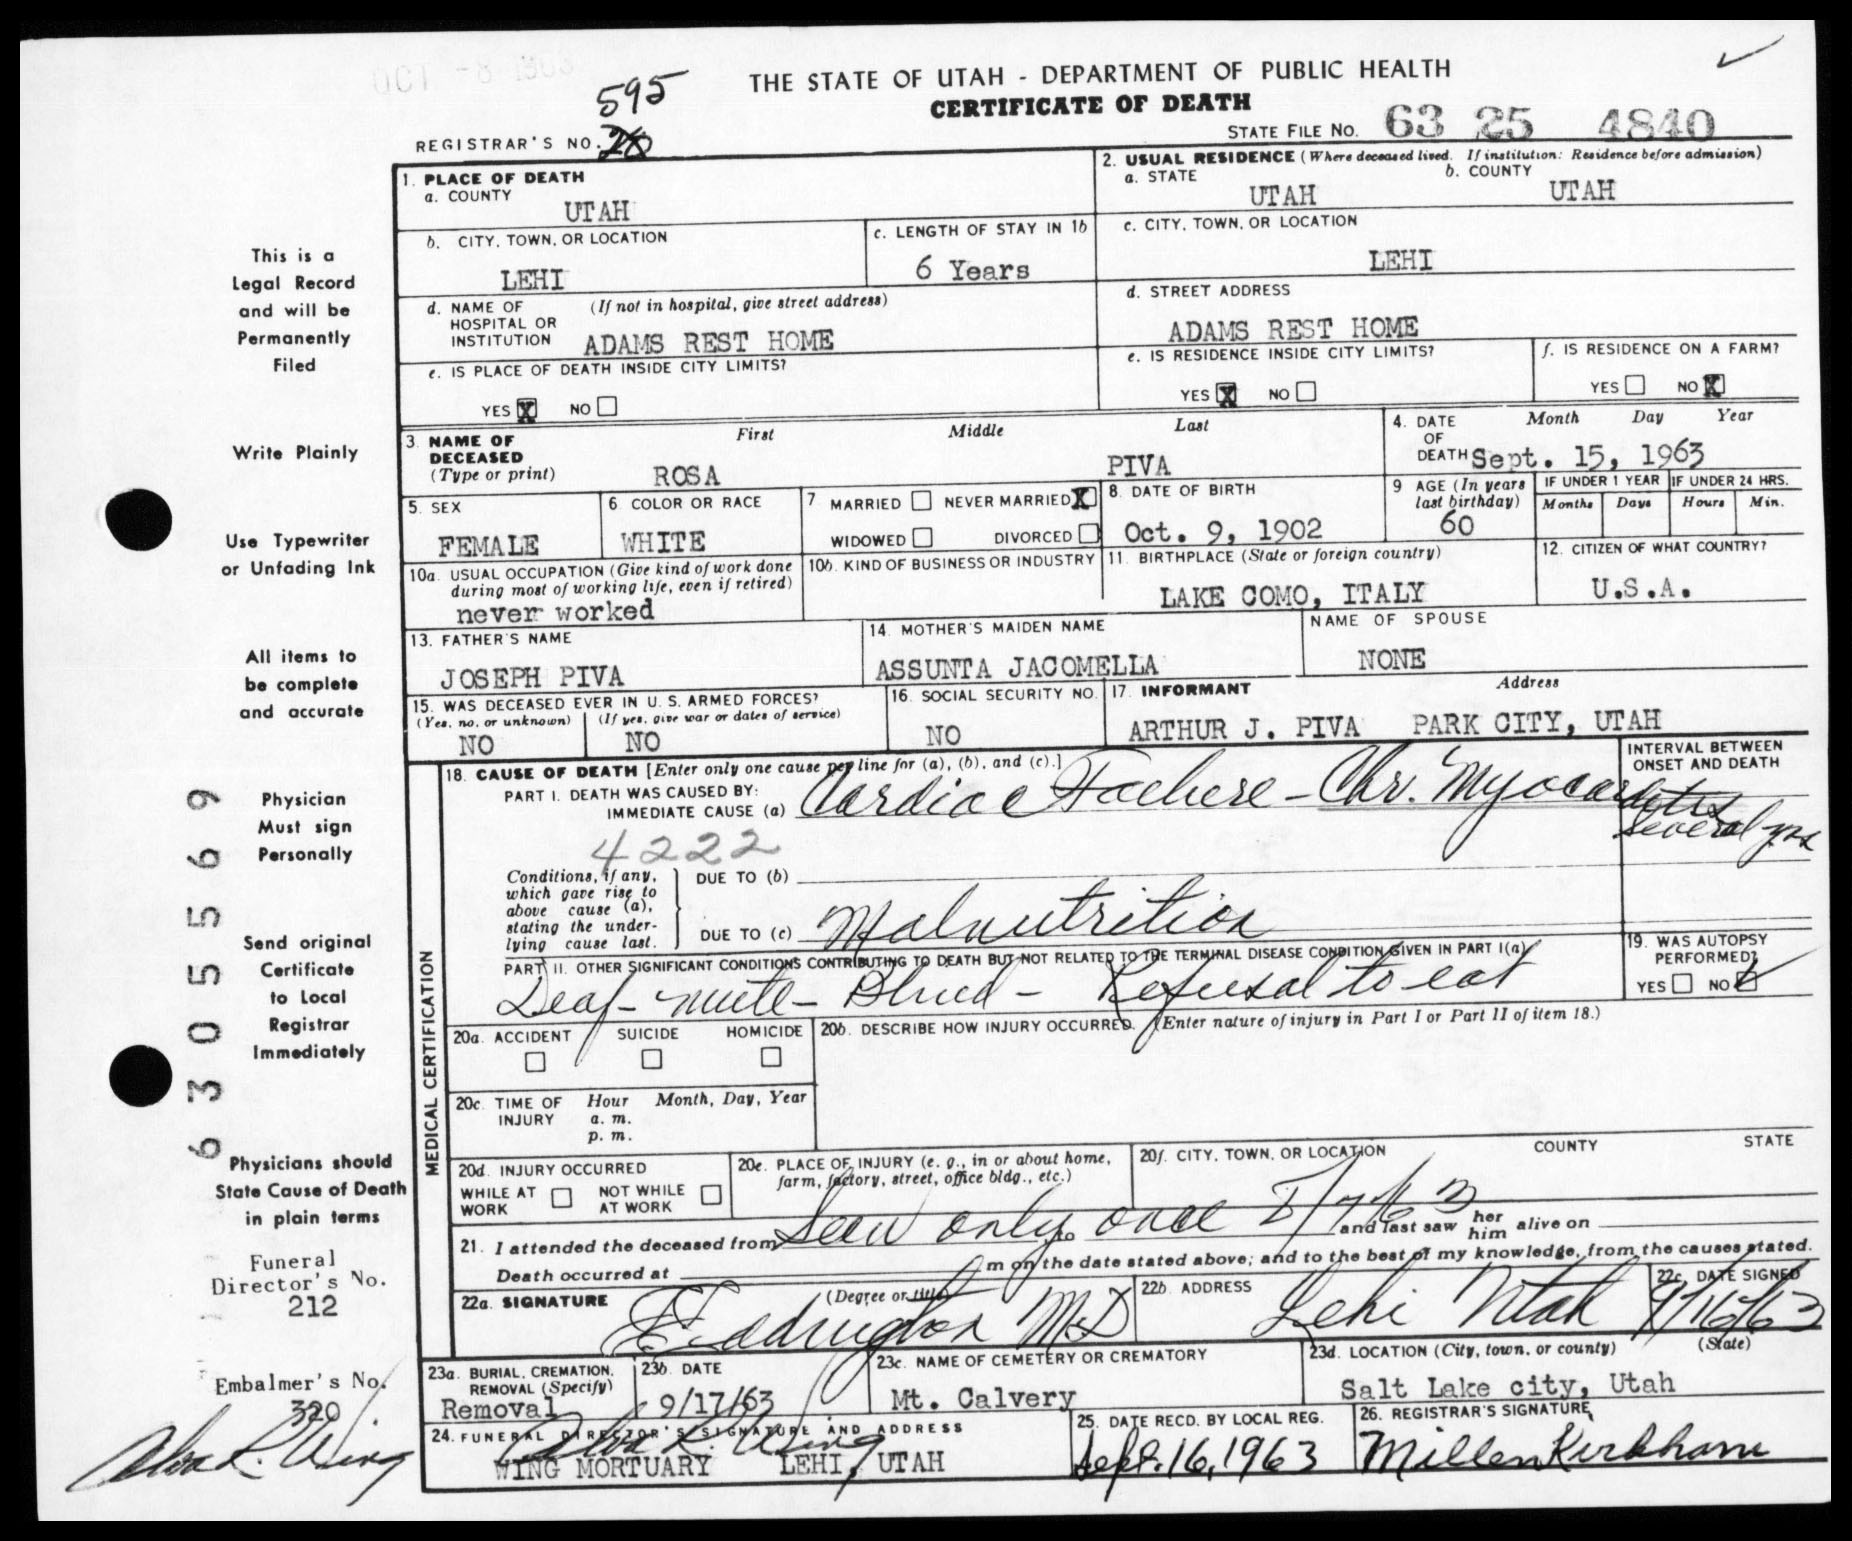 OCT -8 1963
595
THE STATE OF UTAH - DEPARTMENT OF PUBLIC HEALTH
CERTIFICATE OF DEATH
REGISTRAR'S NO.
STATE FILE NO. 63 25 4840
1. PLACE OF DEATH
a. COUNTY
UTAH
2. USUAL RESIDENCE (Where deceased lived. If institution: Residence before admission)
a. STATE
UTAH
b. COUNTY
UTAH
b. CITY, TOWN, OR LOCATION
LEHI
c. LENGTH OF STAY IN 1b
6 Years
c. CITY, TOWN, OR LOCATION
LEHI
d. NAME OF HOSPITAL OR INSTITUTION
(If not in hospital, give street address)
ADAMS REST HOME
d. STREET ADDRESS
ADAMS REST HOME
e. IS PLACE OF DEATH INSIDE CITY LIMITS?
YES X NO
e. IS RESIDENCE INSIDE CITY LIMITS?
YES X NO
f. IS RESIDENCE ON A FARM?
YES NO X
3. NAME OF DECEASED (Type or print)
First Middle Last
ROSA PIVA
4. DATE OF DEATH
Month Day Year
Sept. 15, 1963
5. SEX
FEMALE
6. COLOR OR RACE
WHITE
7 MARRIED NEVER MARRIED X
WIDOWED DIVORCED
8. DATE OF BIRTH
Oct. 9, 1902
9 AGE (In years last birthday)
60
IF UNDER 1 YEAR
Months Days
IF UNDER 24 HRS.
Hours Min.
10a. USUAL OCCUPATION (Give kind of work done during most of working life, even if retired)
never worked
10b. KIND OF BUSINESS OR INDUSTRY
11. BIRTHPLACE (State or foreign country)
LAKE COMO, ITALY
12. CITIZEN OF WHAT COUNTRY?
U.S.A.
13. FATHER'S NAME
JOSEPH PIVA
14. MOTHER'S MAIDEN NAME
ASSUNTA JACOMELLA
NAME OF SPOUSE
NONE
15. WAS DECEASED EVER IN U. S. ARMED FORCES?
(Yes, no, or unknown)
NO
(If yes, give war or dates of service)
NO
16. SOCIAL SECURITY NO.
NO
17. INFORMANT Address
ARTHUR J. PIVA PARK CITY, UTAH
18. CAUSE OF DEATH [Enter only one cause per line for (a), (b), and (c).]
PART I. DEATH WAS CAUSED BY:
IMMEDIATE CAUSE (a) Cardiac Failure - Chr. Myocarditis
INTERVAL BETWEEN ONSET AND DEATH
several yrs
4222
Conditions, if any, which gave rise to above cause (a), stating the underlying cause last.
DUE TO (b)
DUE TO (c) Malnutrition
PART II. OTHER SIGNIFICANT CONDITIONS CONTRIBUTING TO DEATH BUT NOT RELATED TO THE TERMINAL DISEASE CONDITION GIVEN IN PART I(a)
Deaf - mute - Blind - Refusal to eat
19. WAS AUTOPSY PERFORMED?
YES NO
20a. ACCIDENT SUICIDE HOMICIDE
20b. DESCRIBE HOW INJURY OCCURRED. (Enter nature of injury in Part I or Part II of item 18.)
20c. TIME OF INJURY
Hour Month, Day, Year
a. m.
p. m.
20d. INJURY OCCURRED
WHILE AT WORK NOT WHILE AT WORK
20e. PLACE OF INJURY (e. g., in or about home, farm, factory, street, office bldg., etc.)
20f. CITY, TOWN, OR LOCATION COUNTY STATE
21. I attended the deceased from Seen only once 8/7/63 to and last saw her him alive on
Death occurred at m on the date stated above; and to the best of my knowledge, from the causes stated.
22a. SIGNATURE (Degree or title)
Eddington M.D
22b. ADDRESS
Lehi Utah
22c. DATE SIGNED
9/16/63
23a. BURIAL, CREMATION, REMOVAL (Specify)
Removal
23b. DATE
9/17/63
23c. NAME OF CEMETERY OR CREMATORY
Mt. Calvery
23d. LOCATION (City, town, or county) (State)
Salt Lake city, Utah
24. FUNERAL DIRECTOR'S SIGNATURE AND ADDRESS
Alva R. Wing
WING MORTUARY LEHI, UTAH
25. DATE RECD. BY LOCAL REG.
Sept. 16, 1963
26. REGISTRAR'S SIGNATURE
Millen Kirkham
MEDICAL CERTIFICATION
This is a
Legal Record
and will be
Permanently
Filed
Write Plainly
Use Typewriter
or Unfading Ink
All items to
be complete
and accurate
Physician
Must sign
Personally
Send original
Certificate
to Local
Registrar
Immediately
Physicians should
State Cause of Death
in plain terms
Funeral
Director's No.
212
Embalmer's No.
320
Alva R. Wing
63055569